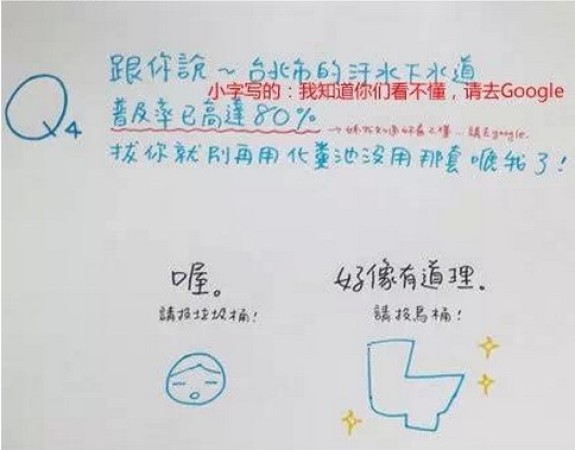 Q4
跟你說～台北市的汙水下水道
小字写的：我知道你们看不懂，请去Google
普及率已高達80%
→ 我知道你看不懂，請去google.
拔你就別再用化糞池沒用那套唬我了!
喔。
好像有道理.
請投垃圾桶!
請投馬桶!